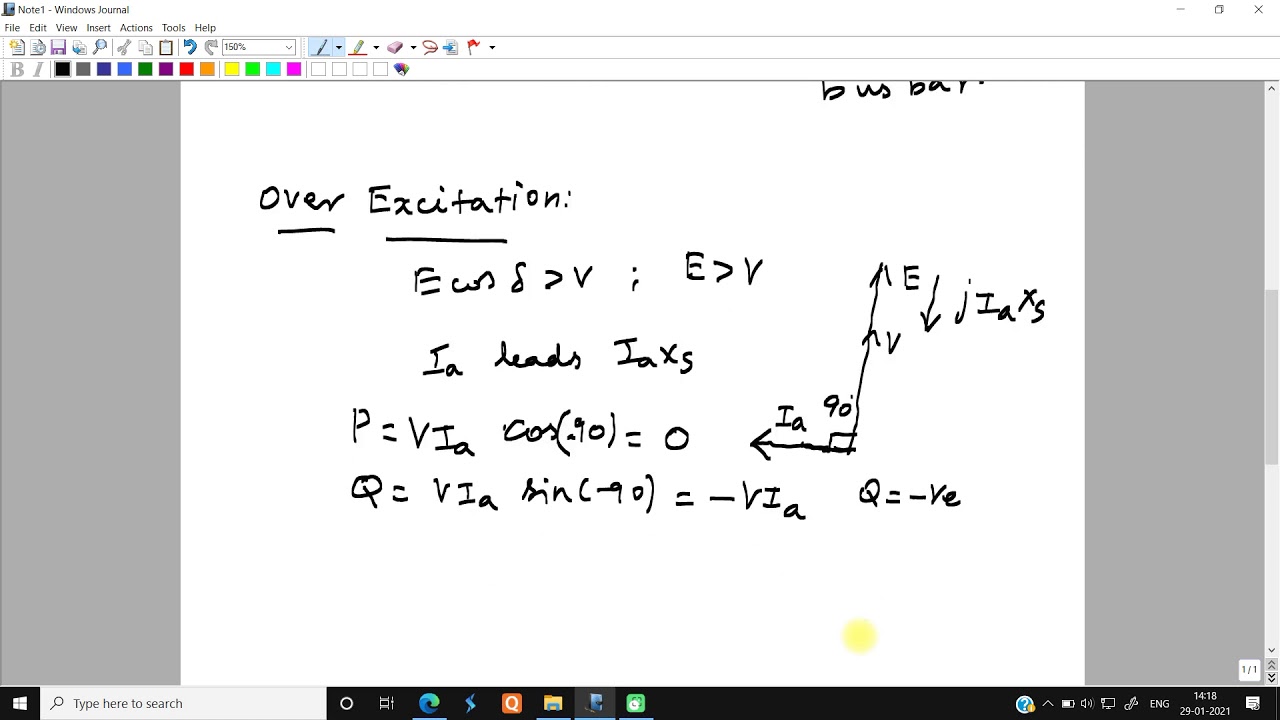 Note1 - Windows Journal
File Edit View Insert Actions Tools Help
150%
B I
bus bar.
Over Excitation:
E cos δ > V ; E > V
E
jIaXs
V
Ia leads IaXs
90
Ia
P = VIa cos(-90) = 0
Q = VIa sin(-90) = -VIa Q = -Ve
1/1
Type here to search
ENG
14:18
29-01-2021